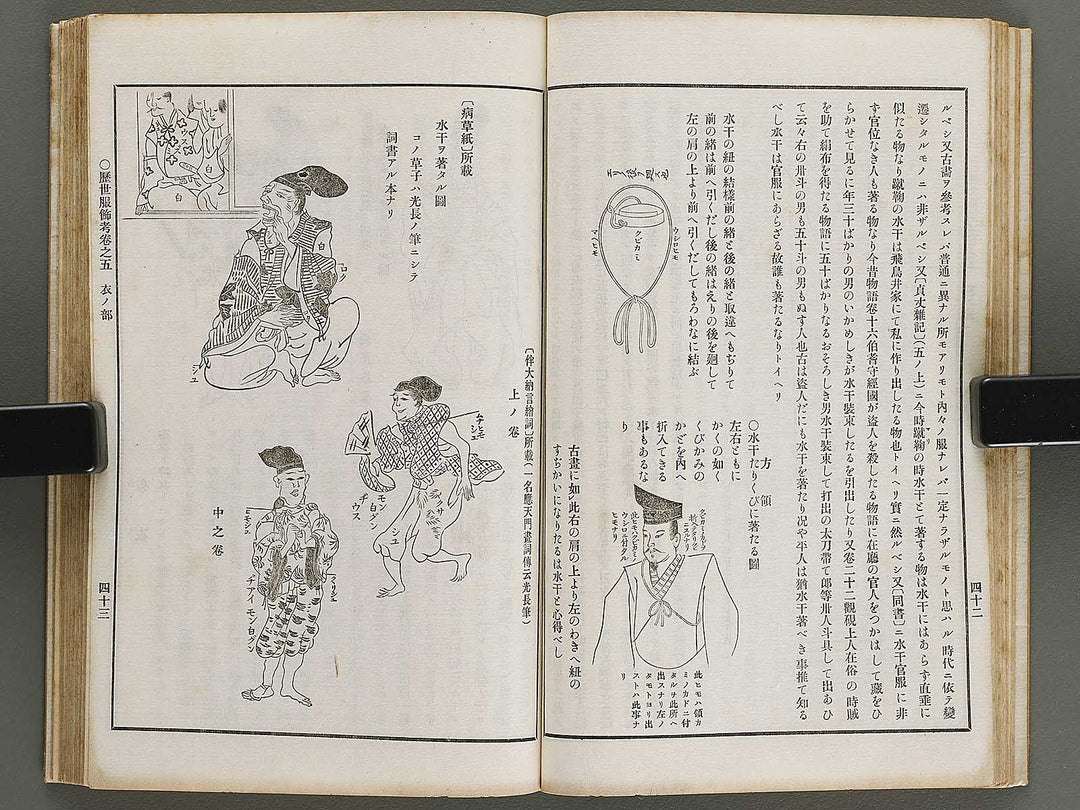 ルベシ又古書ヲ參考スレバ普通ニ異ナル所モアリモト內々ノ服ナレバ一定ナラザルモノト思ハル時代ニ依テ變
遷シタルモノニハ非ザルベシ又〔貞丈雜記〕(五ノ上)ニ今時蹴鞠の時水干とて著する物は水干にはあらず直垂に
似たる物なり蹴鞠の水干は飛鳥井家にて私に作り出したる物也トイヘリ實ニ然ルベシ又〔同書〕ニ水干官服に非
ず官位なき人も著る物なり今昔物語卷十六伯耆守經國が盜人を殺したる物語に在廳の官人をつかはして藏をひ
らかせて見るに年三十ばかりの男のいかめしきが水干裝束したるを引出したり又卷二十二觀硯上人在俗の時賊
を助て絹布を得たる物語に五十ばかりなるおそろしき男水干裝束して打出の太刀帶て郎等卅人斗具して出あひ
て云々右の卅斗の男も五十斗の男もぬす人也古は盜人だにも水干を著たり况や平人は猶水干著べき事推て知る
べし水干は官服にあらざる故誰も著たるなりトイヘリ
水干の紐の結樣前の緒と後の緒と取違へもぢりて
前の緒は前へ引くだし後の緒はえりの後を廻して
左の肩の上より前へ引くだしてもろわなに結ぶ
ウシロヒモ
クビカミ
マヘヒモ
方領
○水干たりくびに著たる圖
左右ともに
かくの如く
くびかみの
かどを內へ
折入てきる
事もあるな
り
此ヒモハ領カ
ミノカドニ付
タルヲ此所ヘ
出スナリ左ノ
タモトヨリ出
ストハ此事ナ
リ
此ヒモハクビカミノ
ウシロニ付タル
ヒモナリ
古畫に如此右の肩の上より左のわきへ紐の
すぢかいになりたるは水干と心得べし
四十二
〔伴大納言繪詞〕所載(一名應天門畫詞傳云光長筆)
上ノ卷
ムナヒモ
シユ
クサ
モン
白グン
ヂ
ウス
シユ
中之卷
ヒモシユ
マリシユ
ヂアイ
モン白グン
〔病草紙〕所載
水干ヲ著タル圖
コノ草子ハ光長ノ筆ニシテ
詞書アル本ナリ
白
ロク
シユ
ウスズミ
白
白
○歷世服飾考卷之五 衣ノ部
四十三